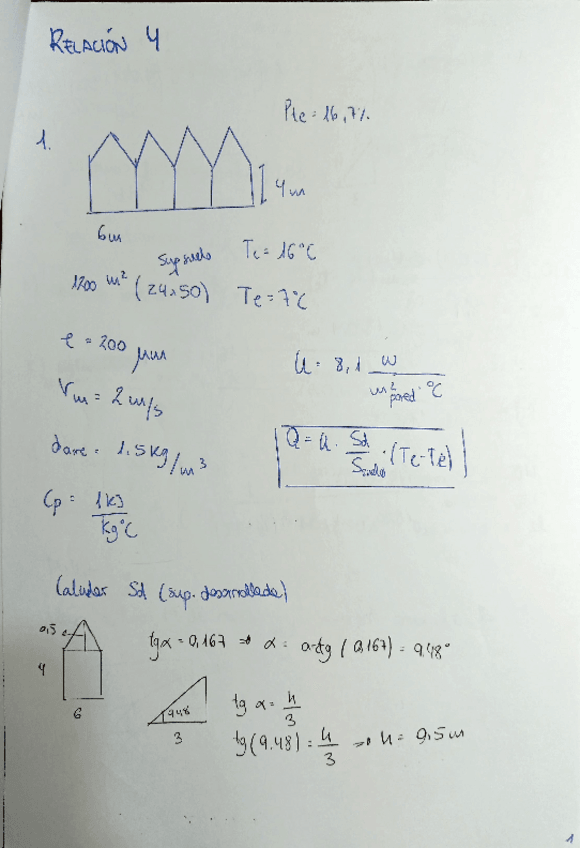 RELACIÓN 4
Pte = 16,7%
1.
4m
6m
Sup suelo
1200 m² (24x50)
Tc = 16°C
Te = 7°C
e = 200 μm
Vm = 2 m/s
daire = 1.5 kg/m³
Cp = 1 kJ / kg°C
U = 8,1 W / m² pared · °C
Q = U · Sd / Ssuelo · (Tc - Te)
Calcular Sd (sup. desarrollada)
0,5
4
6
tgα = 0,167 => α = arctg (0,167) = 9.48°
9.48
3
tg α = h / 3
tg (9.48) = h / 3 => h = 0,5 m
1